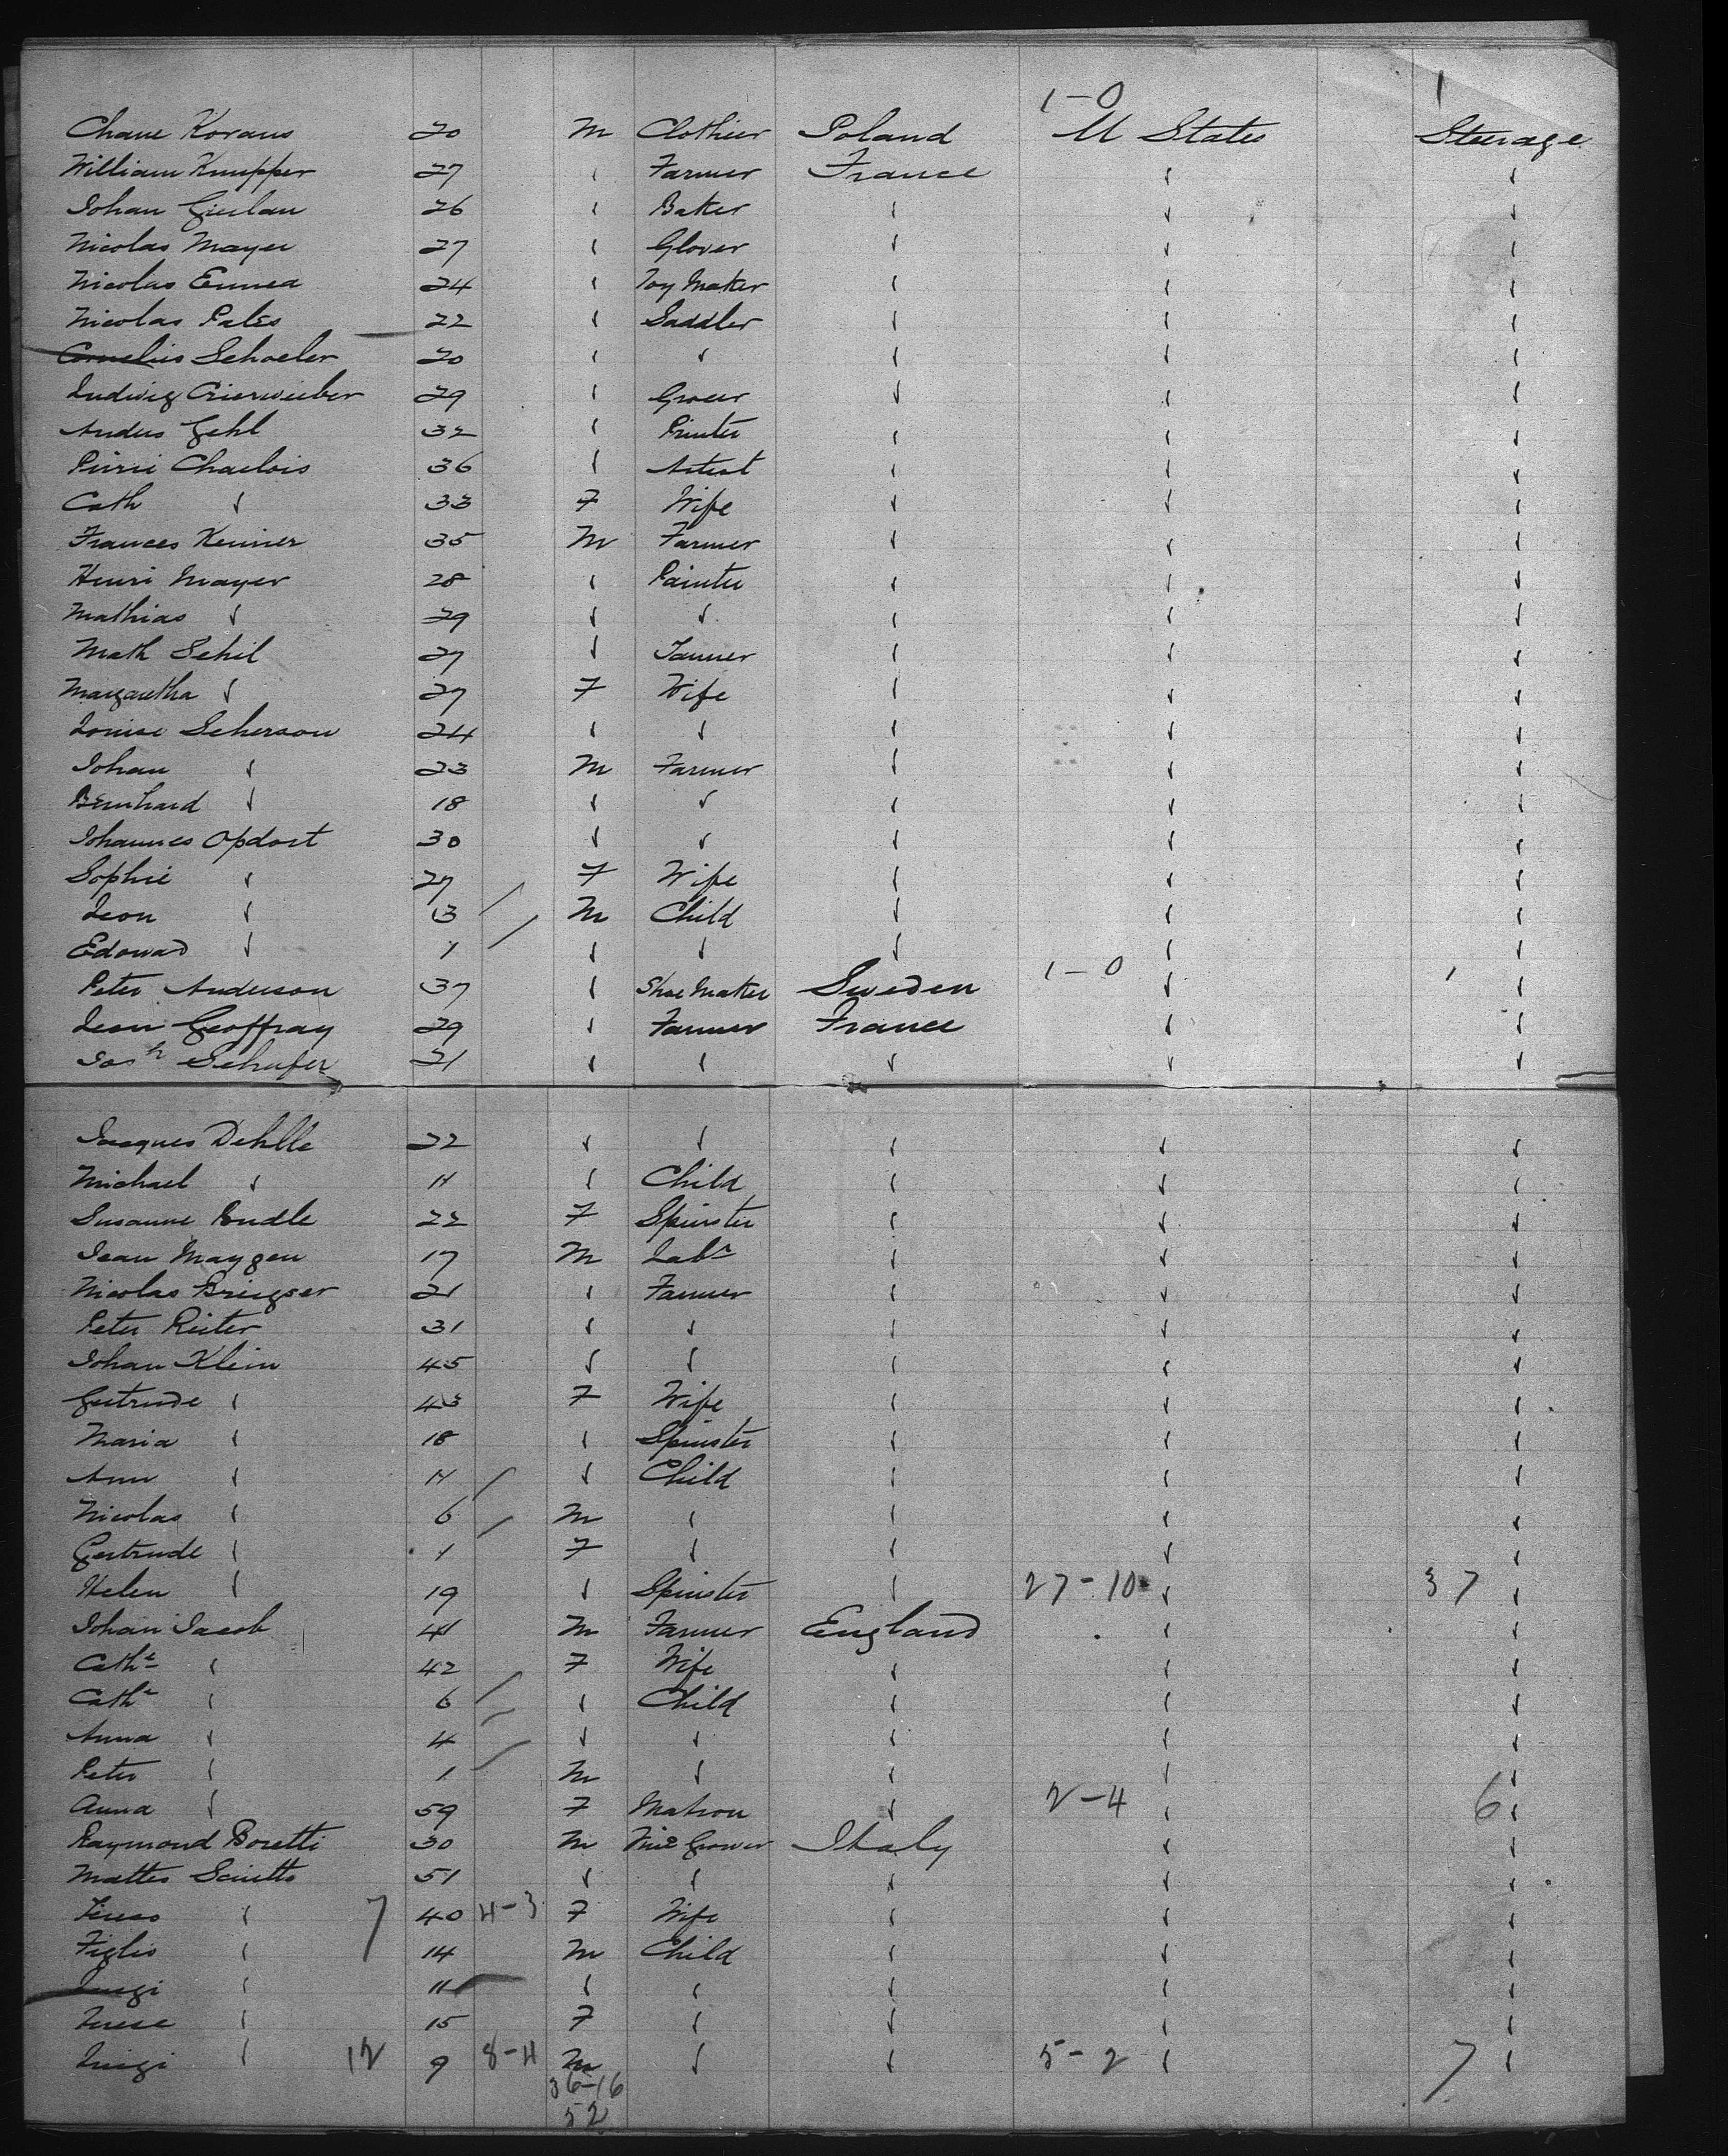 1-0 1
Chane Koraus 20 M Clothier Poland U States Steerage
William Knupper 27 ✓ Farmer France ✓ ✓
Johan Gierlan 26 ✓ Baker ✓ ✓ ✓
Nicolas Mayer 27 ✓ Glover ✓ ✓ ✓
Nicolas Ennea 24 ✓ Toy Maker ✓ ✓ ✓
Nicolas Pales 22 ✓ Saddler ✓ ✓ ✓
Cornelius Schoeler 20 ✓ ✓ ✓ ✓ ✓
Ludwig 29 ✓ Grocer ✓ ✓ ✓
Andres Gehl 32 ✓ Printer ✓ ✓ ✓
Pierre Charlois 36 ✓ Artist ✓ ✓ ✓
Cath ✓ 33 F Wife ✓ ✓ ✓
Frances Kenner 35 M Farmer ✓ ✓ ✓
Henri Mayer 28 ✓ Painter ✓ ✓ ✓
Mathias ✓ 29 ✓ ✓ ✓ ✓ ✓
Math Schil 27 ✓ Tanner ✓ ✓ ✓
Margaretha ✓ 27 F Wife ✓ ✓ ✓
Louise Scherson 24 ✓ ✓ ✓ ✓ ✓
Johan ✓ 23 M Farmer ✓ ✓ ✓
Bernhard ✓ 18 ✓ ✓ ✓ ✓ ✓
Johannes Opdort 30 ✓ ✓ ✓ ✓ ✓
Sophie ✓ 27 F Wife ✓ ✓ ✓
Leon ✓ 13 M Child ✓ ✓ ✓
Edouad ✓ 1 ✓ ✓ ✓ ✓ ✓
1-0 1
Peter Anderson 37 ✓ Shoe Maker Sweden ✓ ✓
Jean Geoffray 29 ✓ Farmer France ✓ ✓
Josh Schafer 21 ✓ ✓ ✓ ✓ ✓
Jacques Dehlle 22 ✓ ✓ ✓ ✓ ✓
Michael ✓ 11 ✓ Child ✓ ✓ ✓
Susanne 22 F Spinster ✓ ✓ ✓
Jean Maygen 17 M Labr ✓ ✓ ✓
Nicolas Bringser 21 ✓ Farmer ✓ ✓ ✓
Peter Reiter 31 ✓ ✓ ✓ ✓ ✓
Johan Klein 45 ✓ ✓ ✓ ✓ ✓
Gertrude ✓ 43 F Wife ✓ ✓ ✓
Maria ✓ 18 ✓ Spinster ✓ ✓ ✓
Ann ✓ 11 ✓ Child ✓ ✓ ✓
Nicolas ✓ 6 M ✓ ✓ ✓ ✓
Gertrude ✓ 1 F ✓ ✓ ✓ ✓
Helen ✓ 19 ✓ Spinster ✓ 27-10 ✓ 37 ✓
Johan Jacob 41 M Farmer England ✓ ✓
Cathe ✓ 42 F Wife ✓ ✓ ✓
Cathe ✓ 6 ✓ Child ✓ ✓ ✓
Anna ✓ 4 ✓ ✓ ✓ ✓ ✓
Peter ✓ 1 M ✓ ✓ ✓ ✓
Anna ✓ 59 F Matron ✓ 2-4 ✓ 6 ✓
Raymond Boretti 30 M Vine Grower Italy ✓ ✓
Matteo 51 ✓ ✓ ✓ ✓ ✓
✓ 7 40 4-3 F Wife ✓ ✓ ✓
Figlio ✓ 14 M Child ✓ ✓ ✓
Luigi ✓ 11 ✓ ✓ ✓ ✓ ✓
Terese ✓ 15 F ✓ ✓ ✓ ✓
Luigi ✓ 12 9 8-4 M ✓ ✓ 5-2 ✓ 7 ✓
36-16
52